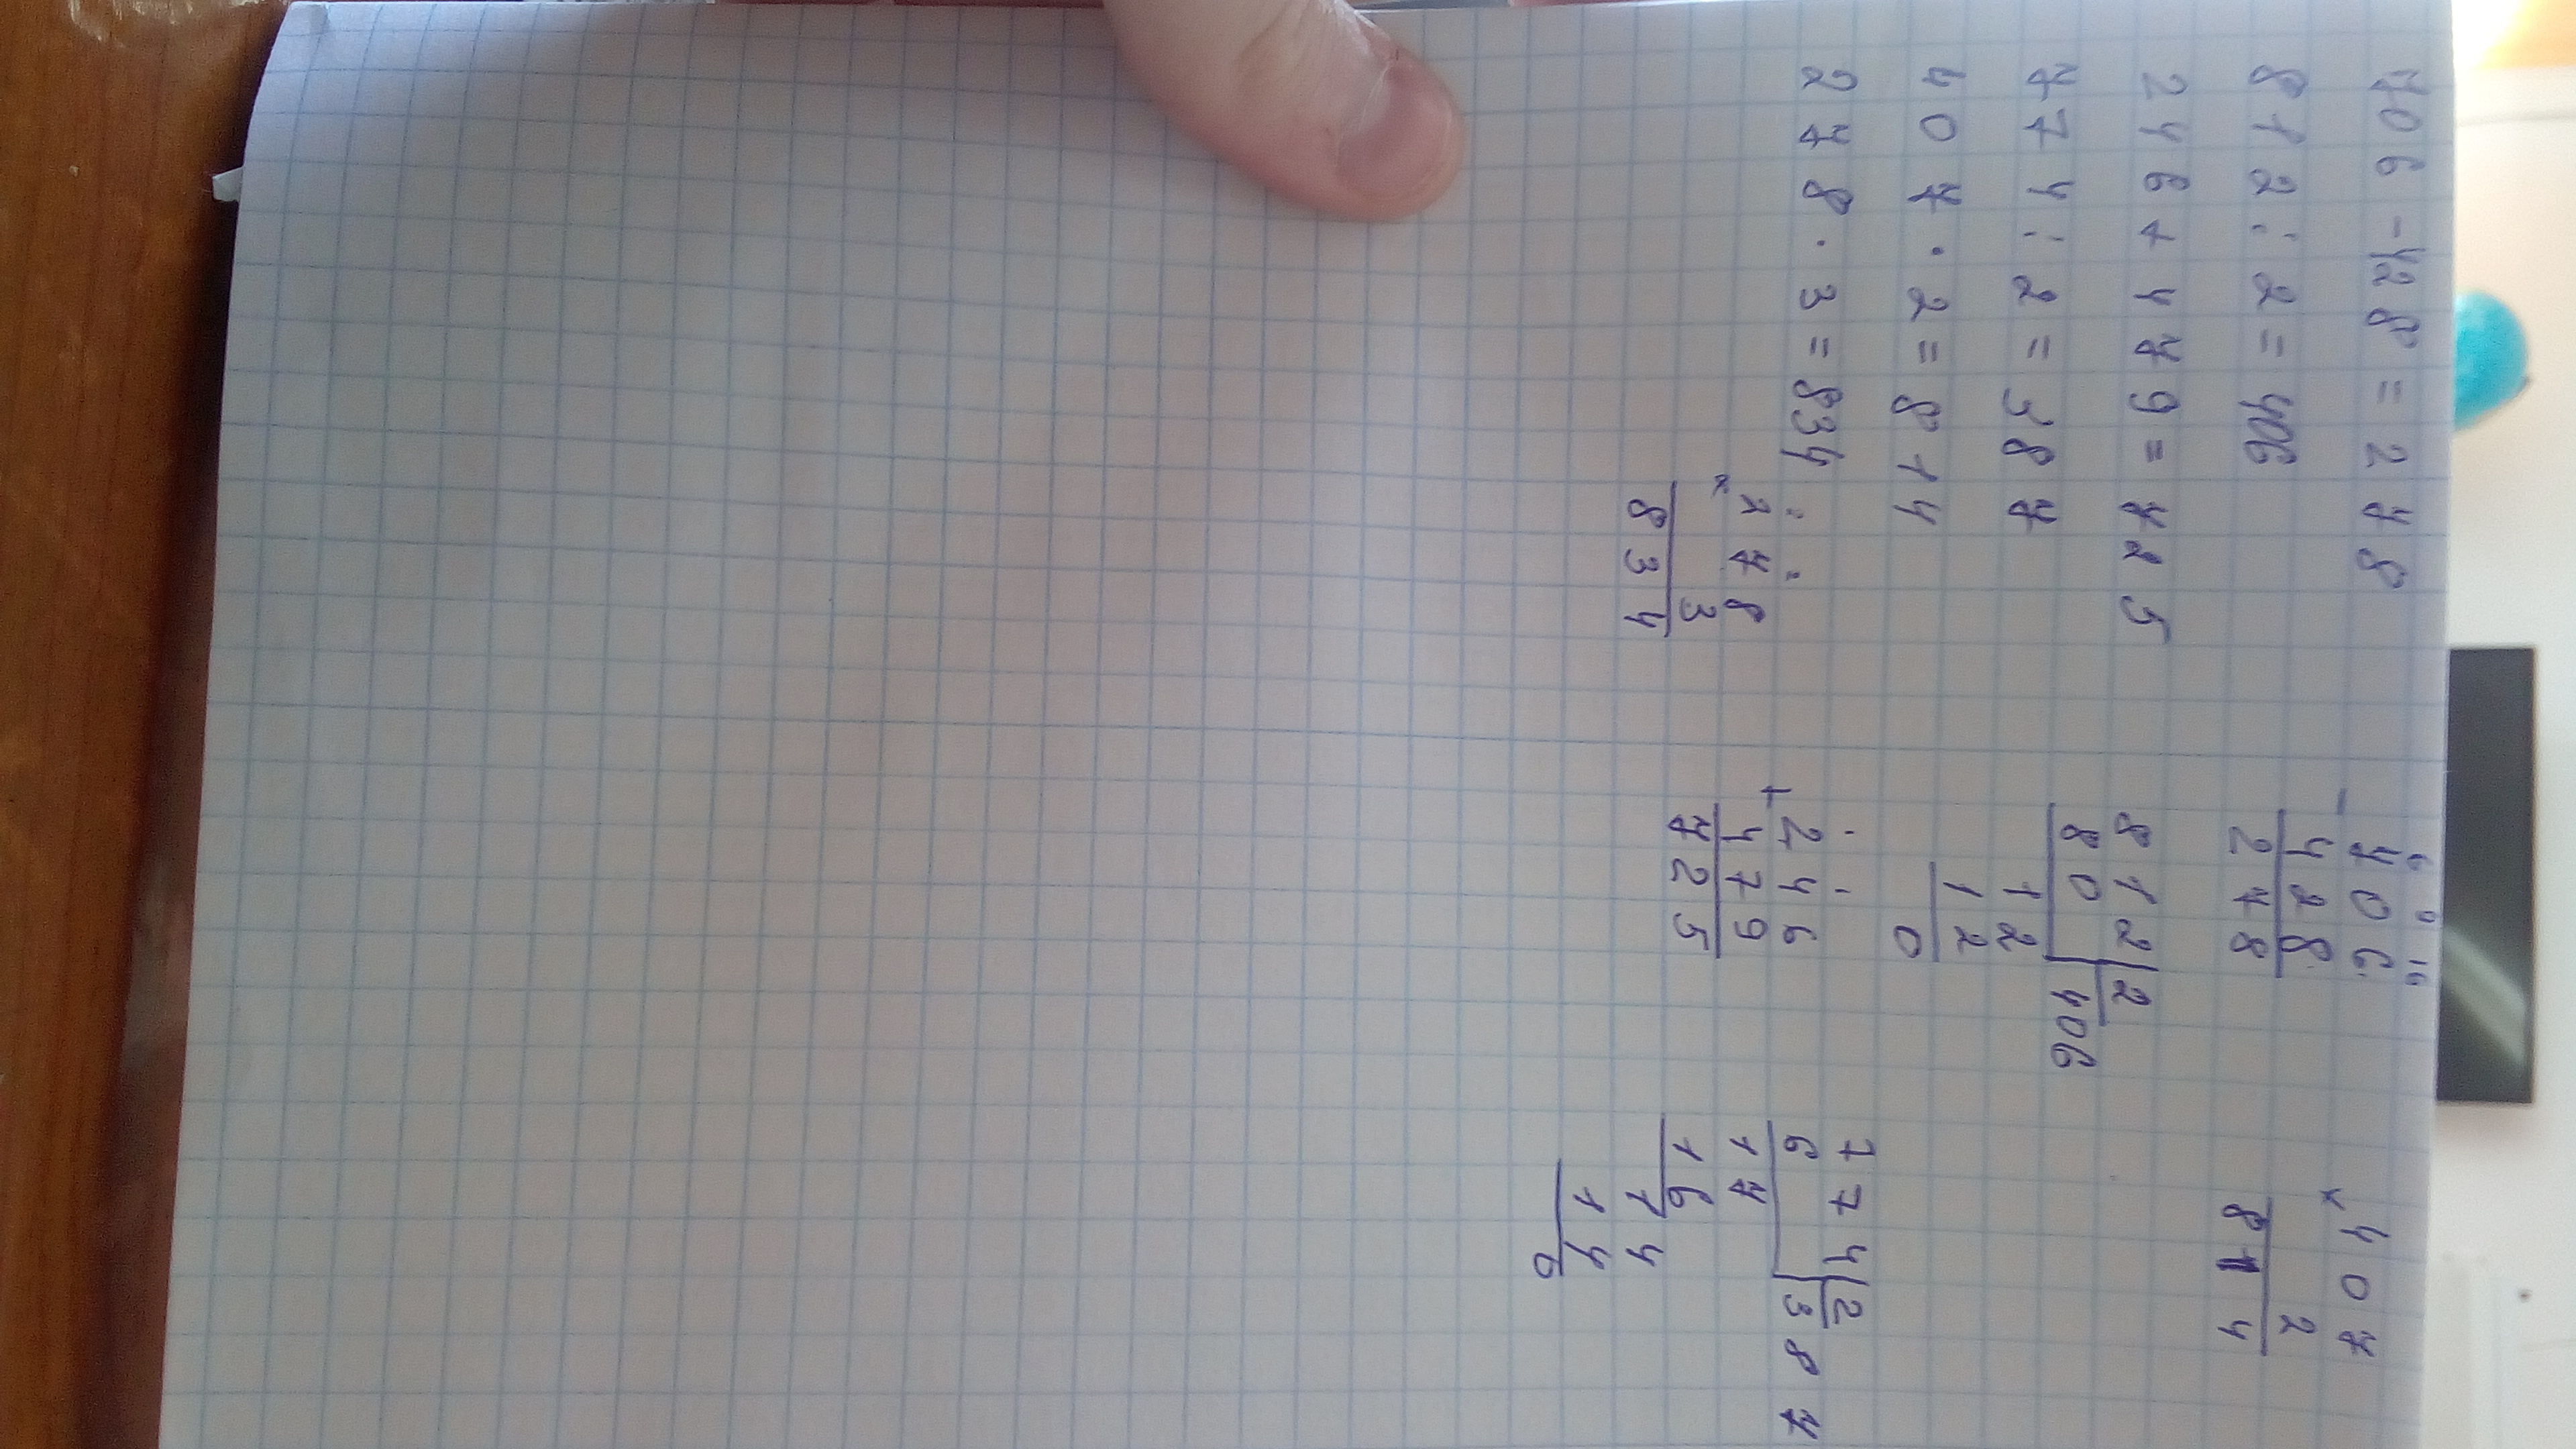 706-428=278
812:2=406
246+479=725
774:2=387
407·2=814
278·3=834
278
×3
834
6 9 16
-706
428
278
812|2
80 406
12
12
0
+246
479
725
×407
2
814
774|2
6 387
17
16
14
14
0